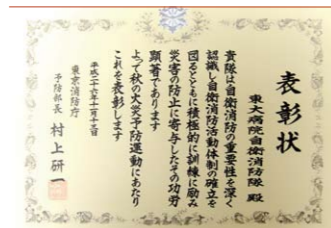 表彰状
東大病院自衛消防隊 殿
貴隊は自衛消防の重要性を深く
認識し自衛消防活動体制の確立を
図るとともに積極的に訓練に励み
災害の防止に寄与したその功労
顕著であります
よって秋の火災予防運動にあたり
これを表彰します
平成二十六年十一月十三日
東京消防庁
予防部長 村上研一